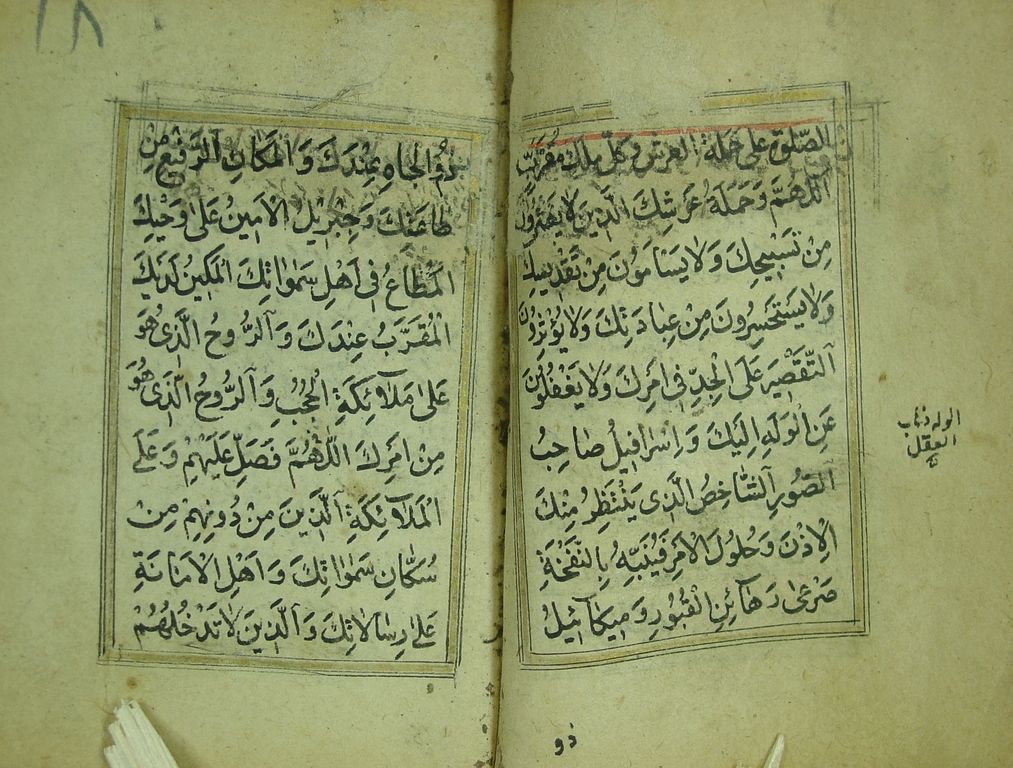 الصَّلوة عَلى حَمَلَة العرش وَكُلِّ مَلَكٍ مُقَرَّبٍ
اَللّٰهُمَّ وَحَمَلَةُ عَرْشِكَ الَّذِينَ لَا يَفْتُرُونَ
مِنْ تَسْبِيحِكَ وَلَا يَسْأَمُونَ مِنْ تَقْدِيسِكَ
وَلَا يَسْتَحْسِرُونَ مِنْ عِبَادَتِكَ وَلَا يُؤْثِرُونَ
اَلتَّقْصِيرَ عَلَى الْجِدِّ فِي اَمْرِكَ وَلَا يَغْفُلُونَ
عَنِ الْوَلَهِ اِلَيْكَ وَاِسْرَافِيلُ صَاحِبُ
الصُّورِ اَلشَّاخِصُ الَّذِى يَنْتَظِرُ مِنْكَ
الْاِذْنَ وَحُلُولَ الْاَمْرِ فَيُنَبِّهُ بِالنَّفْخَةِ
صَرْعىٰ رَهَآئِنِ الْقُبُورِ وَمِيكَآئِيلُ
الوله ذهاب
العقل
ذو
١٨
ذُو الْجَاهِ عِنْدَكَ وَالْمَكَانِ اَلرَّفِيعِ مِنْ
طَاعَتِكَ وَجِبْرِيلُ الْاَمِينُ عَلىٰ وَحْيِكَ
الْمُطَاعُ فِي اَهْلِ سَمٰوَاتِكَ الْمَكِينُ لَدَيْكَ
الْمُقَرَّبُ عِنْدَكَ وَالرُّوحُ الَّذِى هُوَ
عَلىٰ مَلَآئِكَةِ الْحُجُبِ وَالرُّوحُ الَّذِى هُوَ
مِنْ اَمْرِكَ اَللّٰهُمَّ فَصَلِّ عَلَيْهِمْ وَعَلَى
الْمَلَآئِكَةِ الَّذِينَ مِنْ دُونِهِمْ مِنْ
سُكَّانِ سَمٰوَاتِكَ وَاَهْلِ الْاَمَانَةِ
عَلىٰ رِسَالَاتِكَ وَالَّذِينَ لَا تَدْخُلُهُمْ